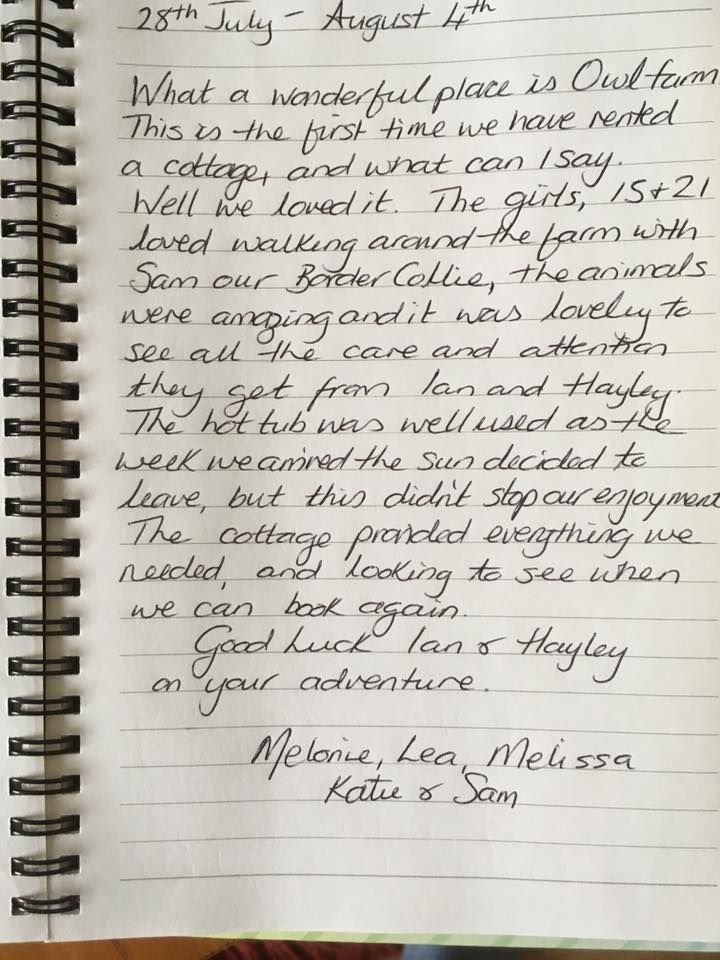 28th July - August 4th
What a wonderful place is Owl farm
This is the first time we have rented
a cottage, and what can I say.
Well we loved it. The girls, 15 + 21
loved walking around the farm with
Sam our Border Collie, the animals
were amazing and it was lovely to
see all the care and attention
they get from Ian and Hayley.
The hot tub was well used as the
week we arrived the sun decided to
leave, but this didn't stop our enjoyment
The cottage provided everything we
needed, and looking to see when
we can book again.
Good Luck Ian & Hayley
on your adventure.
Melonie, Lea, Melissa
Katie & Sam